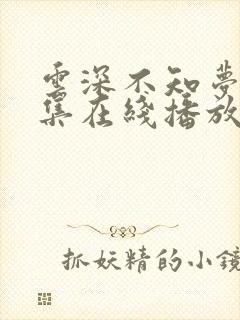 雲深不知夢
集在綫播放
抓妖精的小鏡